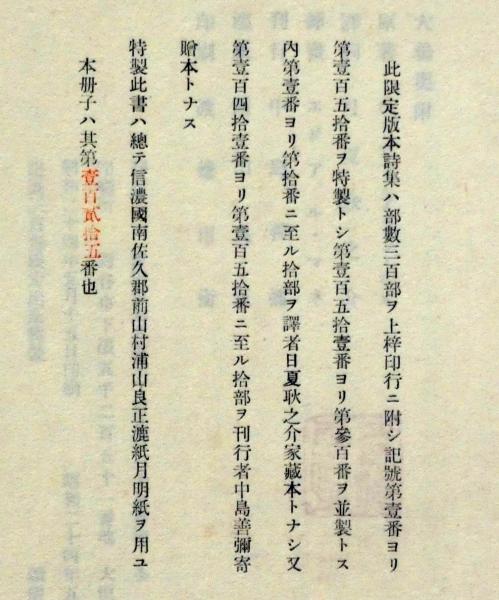 此限定版本詩集ハ部數三百部ヲ上梓印行ニ附シ記號第壹番ヨリ
第壹百五拾番ヲ特製トシ第壹百五拾壹番ヨリ第參百番ヲ並製トス
內第壹番ヨリ第拾番ニ至ル拾部ヲ譯者日夏耿之介家藏本トナシ又
第壹百四拾壹番ヨリ第壹百五拾番ニ至ル拾部ヲ刊行者中島善彌寄
贈本トナス
特製此書ハ總テ信濃國南佐久郡前山村浦山良正漉紙月明紙ヲ用ユ
本册子ハ其第壹百貳拾五番也